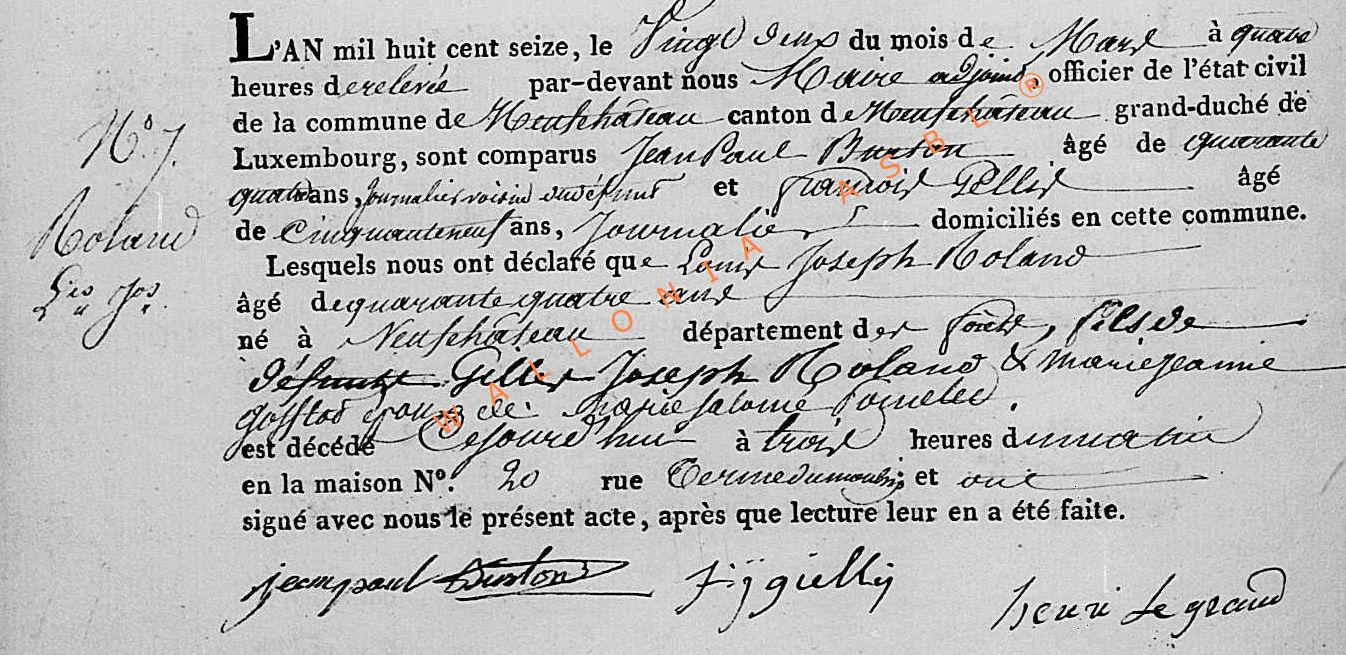 L'AN mil huit cent seize, le Vingt deux du mois de Mars à quatre
heures de relevée par-devant nous Maire adjoint, officier de l'état civil
de la commune de Neufchâteau canton de Neufchâteau grand-duché de
Luxembourg, sont comparus Jean Paul Burton âgé de quarante
quatre ans, journalier voisin du défunt et françois Gillis âgé
de Cinquante neuf ans, Journalier domiciliés en cette commune.
N° 7.
Roland
Ls Jos
Lesquels nous ont déclaré que Louis Joseph Roland
âgé de quarante quatre ans
né à Neufchâteau département des forêts, fils de
défunts Gilles Joseph Roland & marie jeanne
époux de marie salomé
est décédé Cejourd'hui à trois heures du matin
en la maison N°. 20 rue et ont
signé avec nous le présent acte, après que lecture leur en a été faite.
jean paul Burton
henri Legrand
WALLONIA ASBL ®